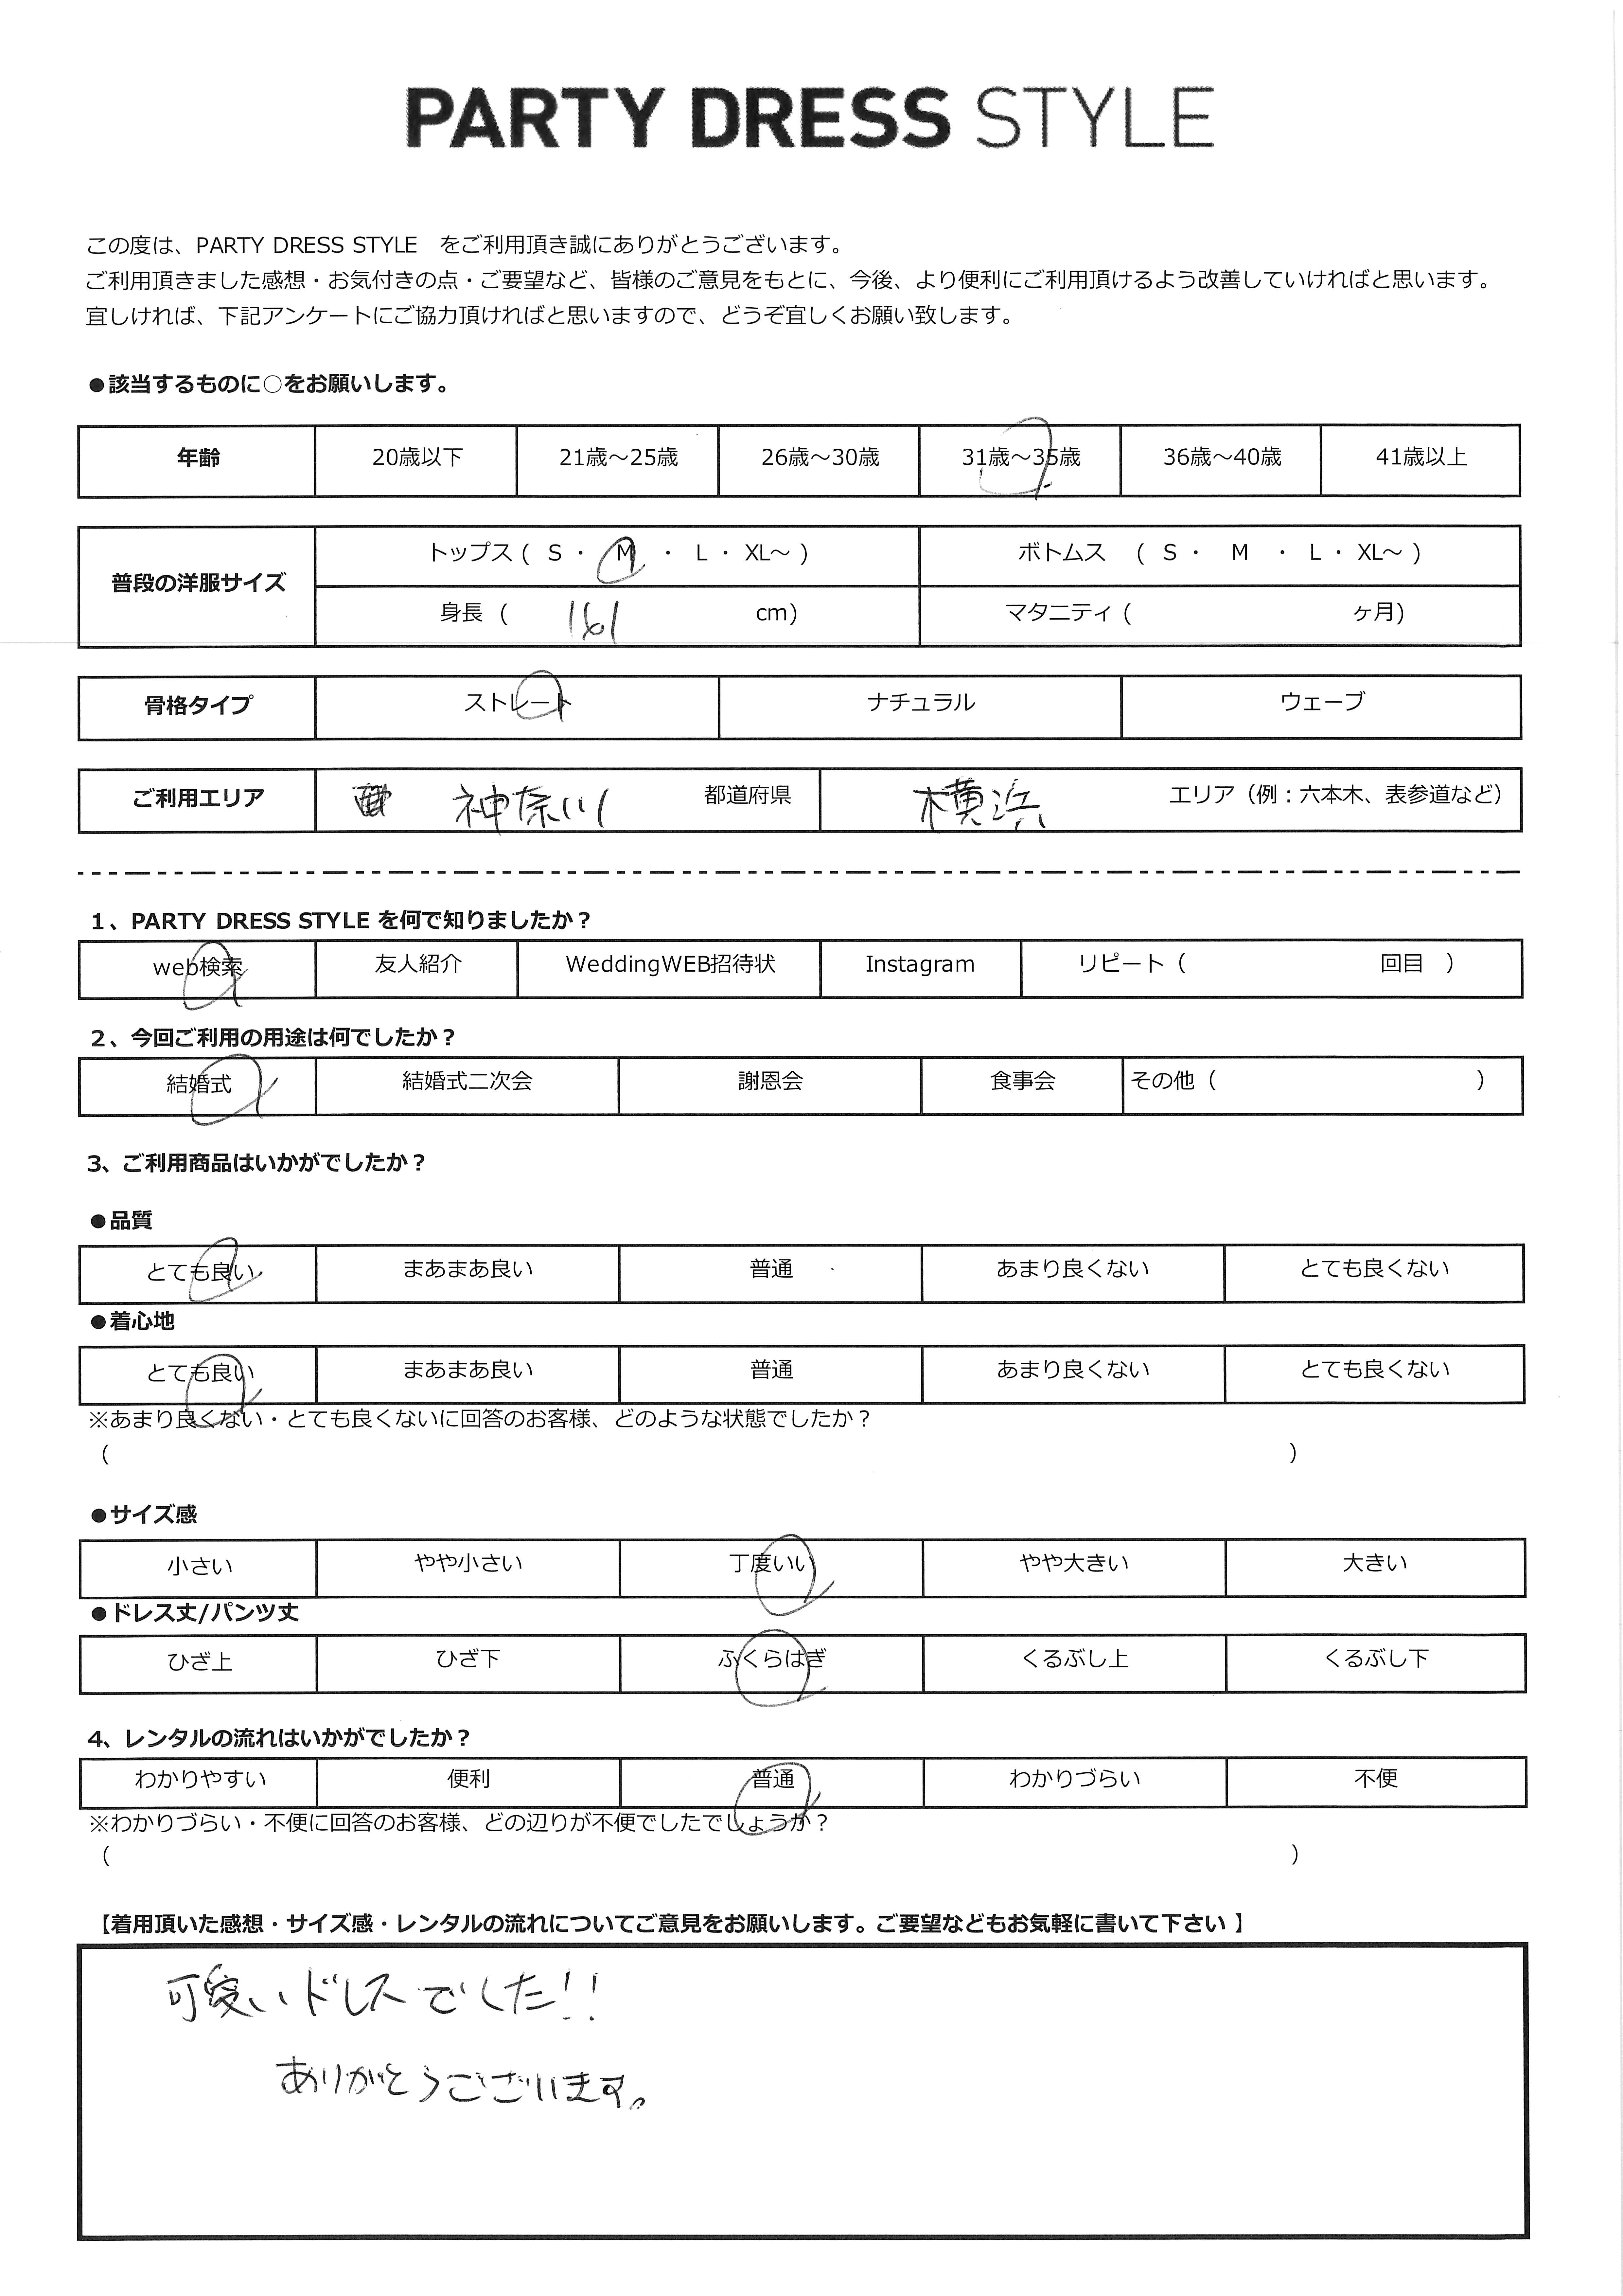 PARTY DRESS STYLE
この度は、PARTY DRESS STYLE　をご利用頂き誠にありがとうございます。
ご利用頂きました感想・お気付きの点・ご要望など、皆様のご意見をもとに、今後、より便利にご利用頂けるよう改善していければと思います。
宜しければ、下記アンケートにご協力頂ければと思いますので、どうぞ宜しくお願い致します。
●該当するものに○をお願いします。
年齢 20歳以下 21歳～25歳 26歳～30歳 31歳～35歳 36歳～40歳 41歳以上
普段の洋服サイズ トップス ( S ・ M ・ L ・ XL～ ) ボトムス ( S ・ M ・ L ・ XL～ )
身長 ( 161 cm) マタニティ ( ヶ月)
骨格タイプ ストレート ナチュラル ウェーブ
ご利用エリア 神奈川 都道府県 横浜 エリア（例：六本木、表参道など）
1、PARTY DRESS STYLE を何で知りましたか？
web検索 友人紹介 WeddingWEB招待状 Instagram リピート（ 回目 ）
2、今回ご利用の用途は何でしたか？
結婚式 結婚式二次会 謝恩会 食事会 その他（ ）
3、ご利用商品はいかがでしたか？
●品質
とても良い まあまあ良い 普通 あまり良くない とても良くない
●着心地
とても良い まあまあ良い 普通 あまり良くない とても良くない
※あまり良くない・とても良くないに回答のお客様、どのような状態でしたか？
（ ）
●サイズ感
小さい やや小さい 丁度いい やや大きい 大きい
●ドレス丈/パンツ丈
ひざ上 ひざ下 ふくらはぎ くるぶし上 くるぶし下
4、レンタルの流れはいかがでしたか？
わかりやすい 便利 普通 わかりづらい 不便
※わかりづらい・不便に回答のお客様、どの辺りが不便でしたでしょうか？
（ ）
【着用頂いた感想・サイズ感・レンタルの流れについてご意見をお願いします。ご要望などもお気軽に書いて下さい 】
可愛いドレスでした!!
ありがとうございます。